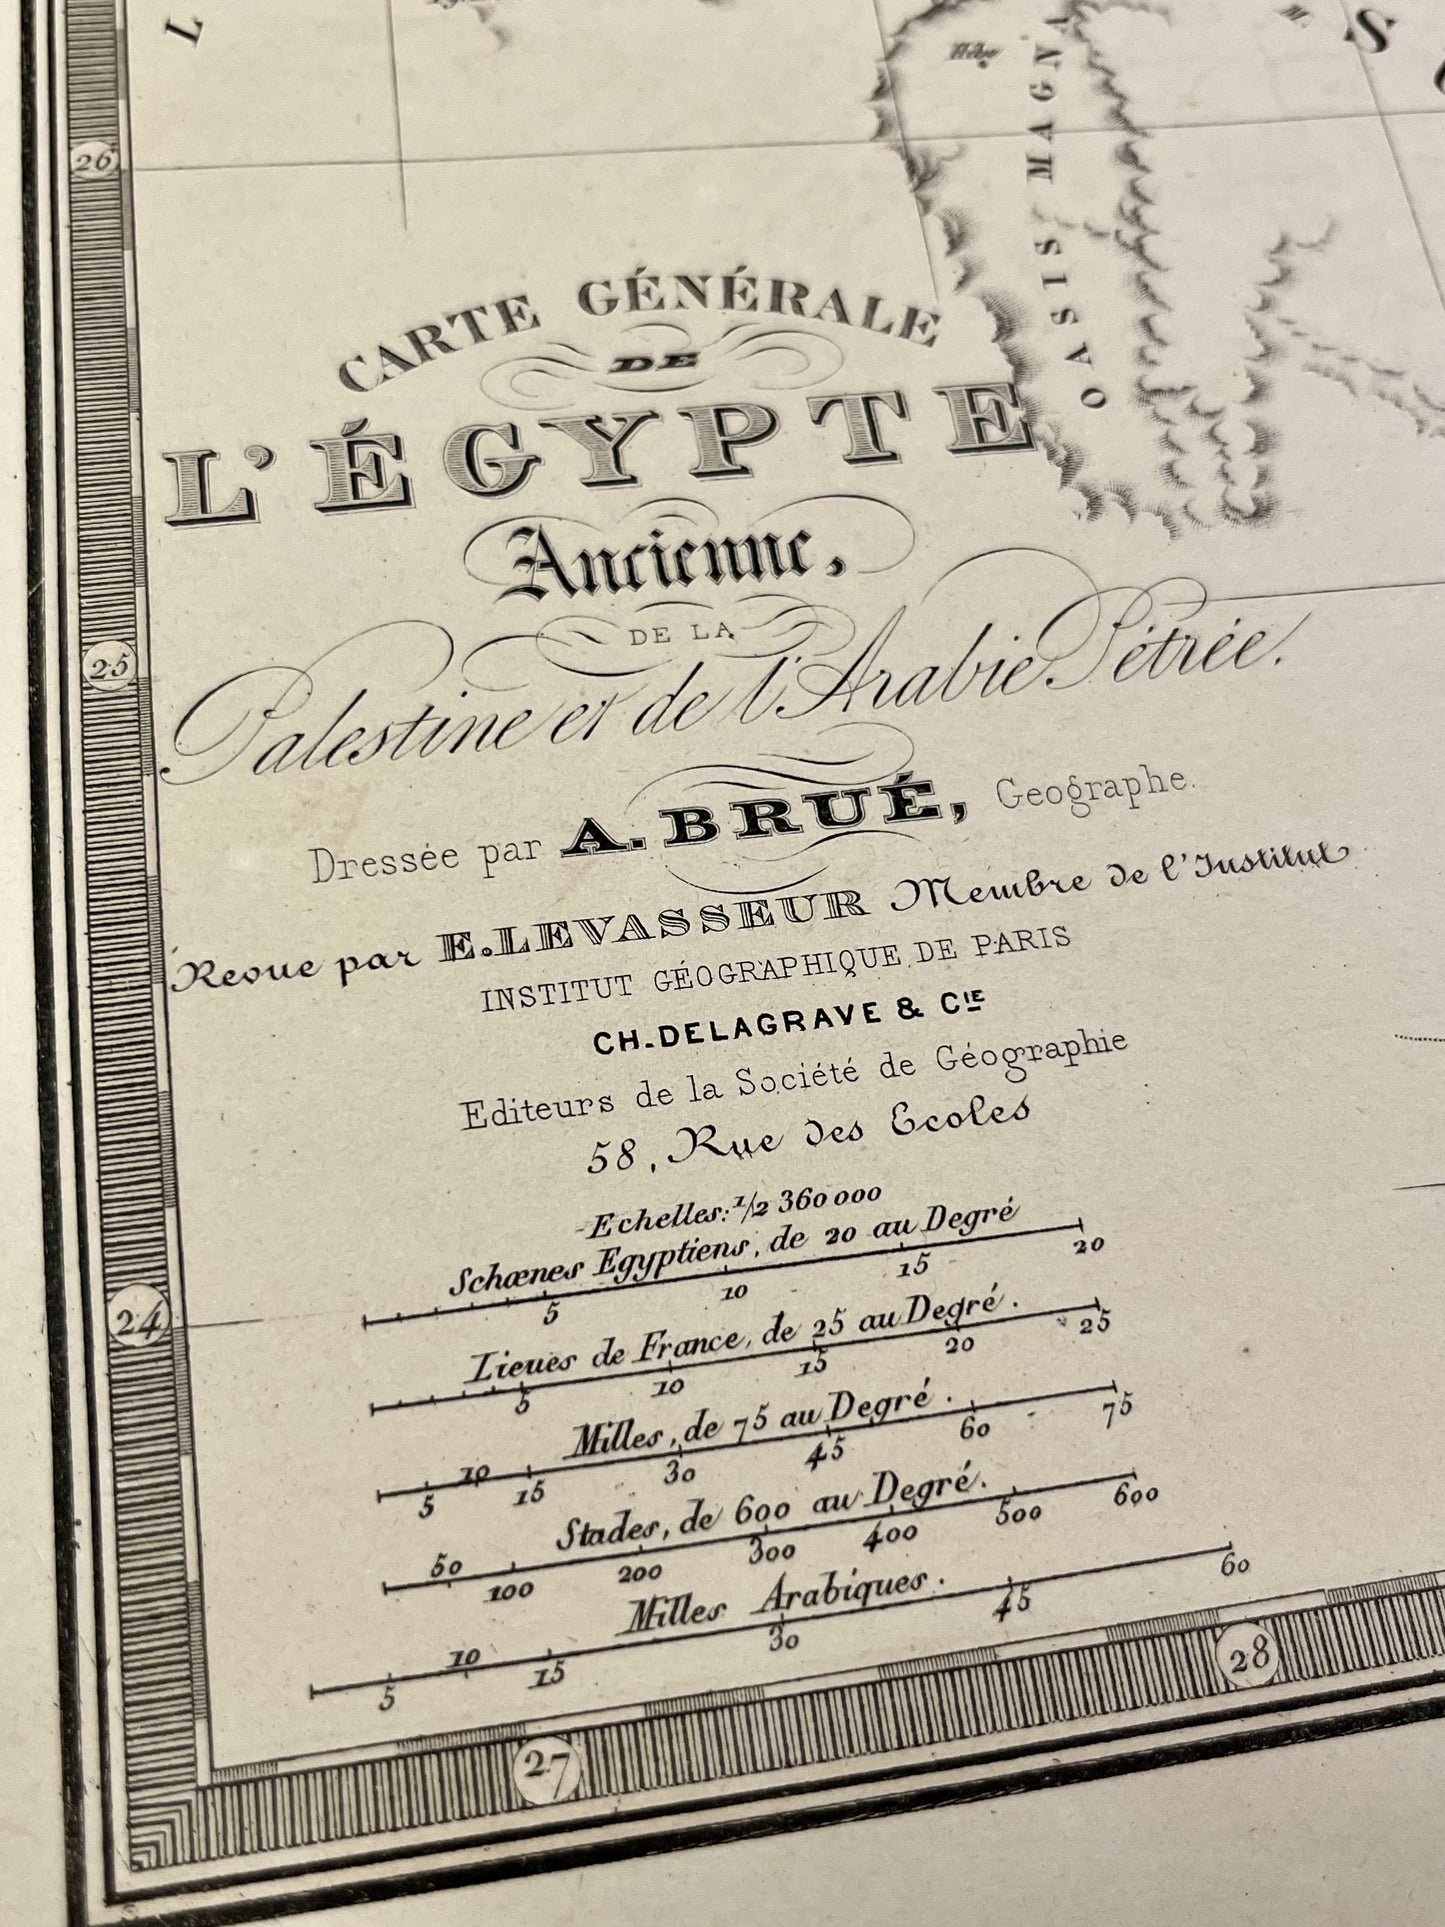 26
OASIS MAGNA
CARTE GÉNÉRALE
DE
L'ÉGYPTE
Ancienne,
DE LA
Palestine et de l'Arabie Pétrée.
25
Dressée par A. BRUÉ, Geographe.
Revue par E. LEVASSEUR Membre de l'Institut
INSTITUT GÉOGRAPHIQUE DE PARIS
CH. DELAGRAVE & CIE
Editeurs de la Société de Géographie
58, Rue des Ecoles
Echelles: 1/2 360 000
Schœnes Egyptiens, de 20 au Degré
5 10 15 20
24
Lieues de France, de 25 au Degré.
5 10 15 20 25
Milles, de 75 au Degré.
5 10 15 30 45 60 75
Stades, de 600 au Degré.
50 100 200 300 400 500 600
Milles Arabiques.
5 10 15 30 45 60
27 28